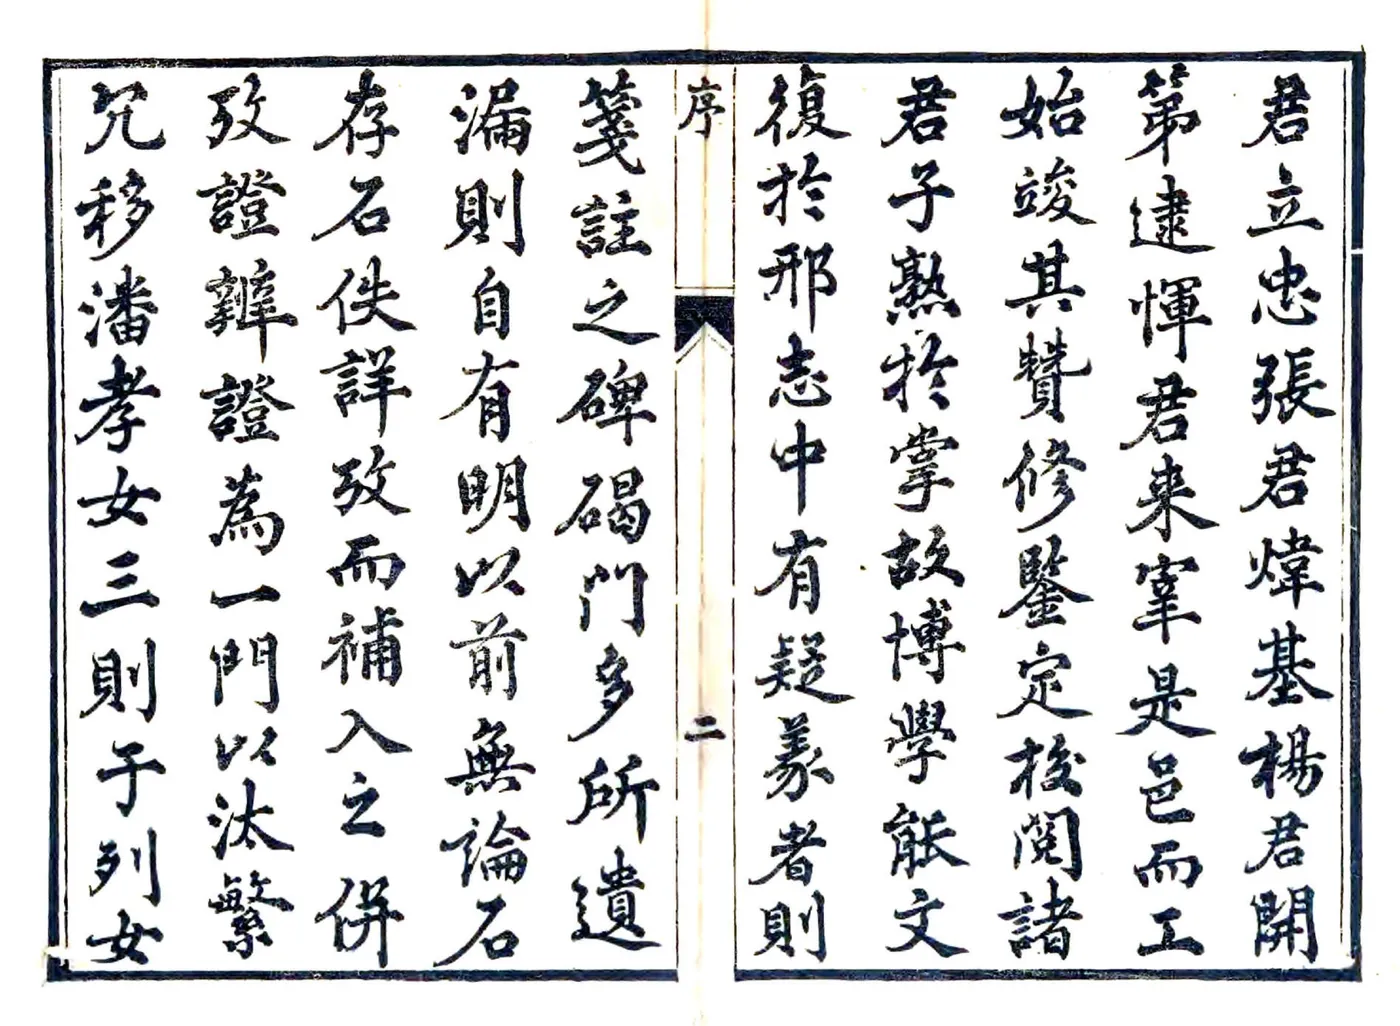 君立忠張君煒基楊君開
第逮惲君来宰是邑而工
始竣其贊修鑒定挍閲諸
君子熟於掌故博學能文
復於邢志中有疑義者則
序
二
箋註之碑碣門多所遺
漏則自有明以前無論石
存石佚詳攷而補入之併
攷證辨證為一門以汰繁
冗移潘孝女三則于列女